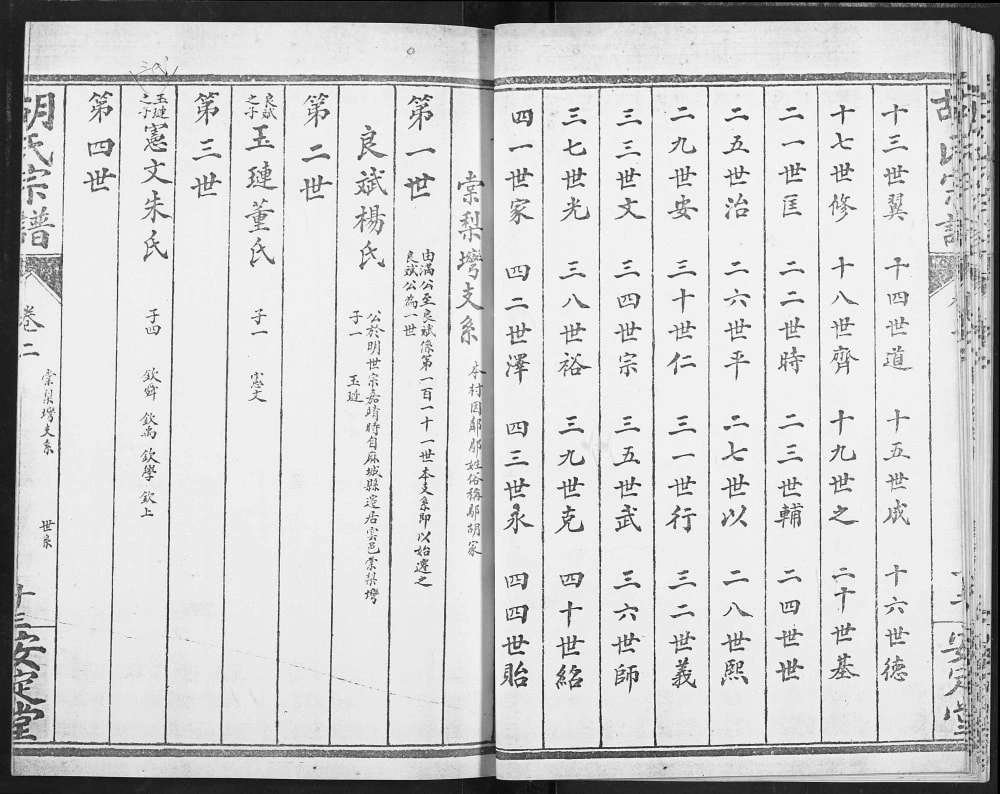 十三世翼 十四世道 十五世成 十六世德
十七世修 十八世齊 十九世之 二十世基
二一世匡 二二世時 二三世輔 二四世世
二五世治 二六世平 二七世以 二八世熙
二九世安 三十世仁 三一世行 三二世義
三三世文 三四世宗 三五世武 三六世師
三七世光 三八世裕 三九世克 四十世紹
四一世家 四二世澤 四三世永 四四世貽
棠梨灣支系 本村因鄰鄔姓俗稱鄔胡家
第一世 由滿公至良斌係第一百一十一世本支系即以始遷之
良斌公為一世
良斌楊氏 公於明世宗嘉靖時自麻城縣遷居雲邑棠梨灣
子一 玉璉
第二世
良斌之子 玉璉董氏 子一 憲文
第三世
玉璉之子 憲文朱氏 子四 欽舜 欽禹 欽學 欽上
第四世
胡氏宗譜 卷二 棠梨灣支系 世系 十三 安定堂